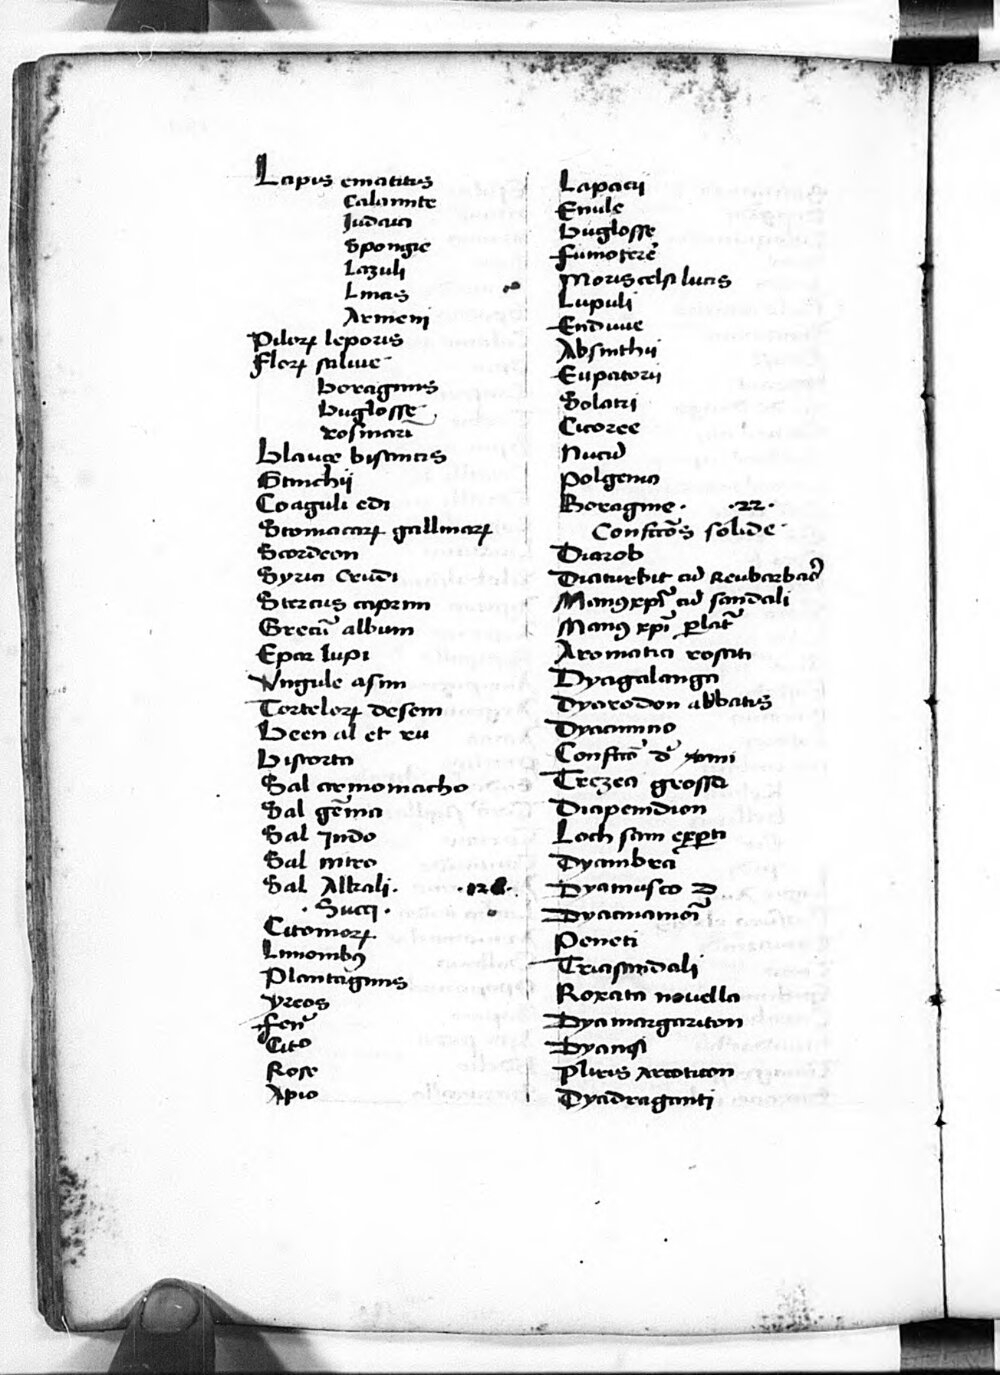 Lapis ematitis
Calamite
Iudaici
Spongie
Lazuli
Lincis
Armeni
Pilorꝝ leporis
Florꝝ salvie
boraginis
buglosse
rosmari͂
blauce bisancis
Stinchij
Coaguli edi
Stomacarꝝ gallinarꝝ
Scordeon
Syrici crudi
Stercus caprini
Grecu͂ album
Epar lupi
Ungule asini
Tortelorꝝ de sem
been al et ru
bistorta
Sal armoniacho
Sal ge͂ma
Sal Indo
Sal nitro
Sal Alkali.
. Succi .
Citoniorꝝ
Limonibꝯ
Plantaginis
Yreos
Fen͂
Cito
Rose
Apio
Lapacij
Enule
buglosse
fumotere͂
Moris celsi lucis
Lupuli
Endivie
Absinthij
Eupatorij
Solatri
Cicoree
Nuciu͂
Polgenia
Boragine . .22.
Confcto͂s solide
Diarob
Diaturbit cu͂ reubarbaro͂
Manꝯ xp͂i cu͂ sandali
Manꝯ xp͂i plat͂
Aromatici rosati
Dyagalanga
Dyarodon abbatis
Dyacimino
Confcto͂ d͂
Trezea grossa
Diapenidion
Loch san exꝑti
Dyambra͂
Dyamusco
Dyacinamo͂i
Peneti
Triasandali
Roxata novella
Dyamargariton
Dyanꝯi
Pliris arcoticon
Dyadraganti